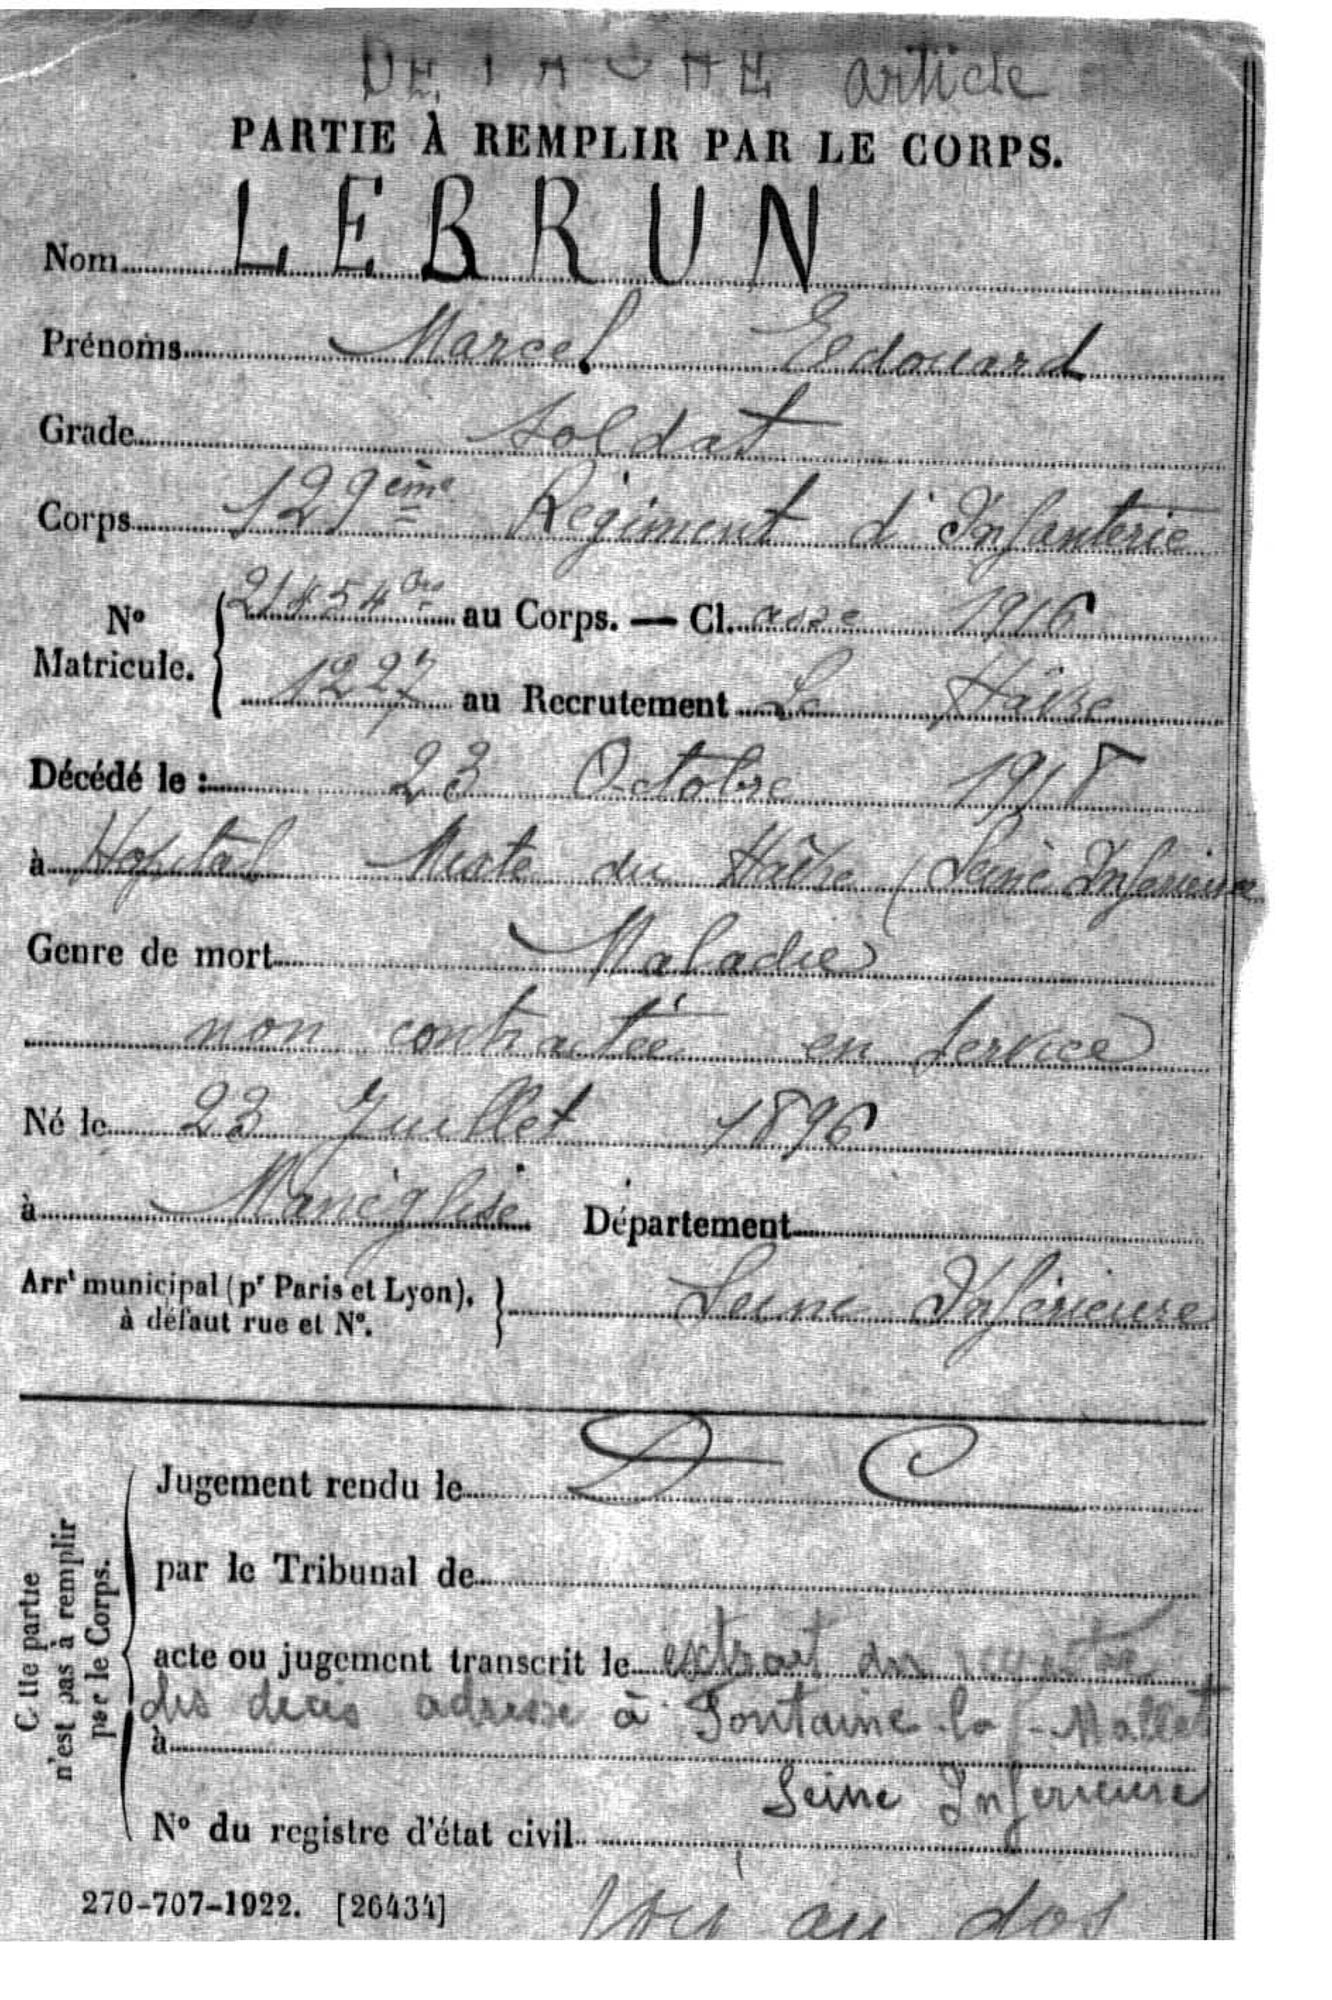 article
PARTIE À REMPLIR PAR LE CORPS.
Nom LEBRUN
Prénoms Marcel Edouard
Grade Soldat
Corps 129ème Régiment d'Infanterie
No Matricule. { au Corps. — Cl.asse 1916
1227 au Recrutement Le Hâvre
Décédé le : 23 Octobre 1918
à Hopital Mixte du Hâvre (Seine Inferieure
Genre de mort Maladie
non contractée en Service
Né le 23 Juillet 1896
à Manéglise Département
Arrt municipal (pr Paris et Lyon), à défaut rue et No. } Seine Inférieure
Jugement rendu le D C
par le Tribunal de
acte ou jugement transcrit le extrait du registre
des decis adresse à Fontaine-la-Mallet
à
Seine Inferieure
No du registre d'état civil
Cette partie
n'est pas à remplir
par le Corps.
270-707-1922. [26434]
au dos